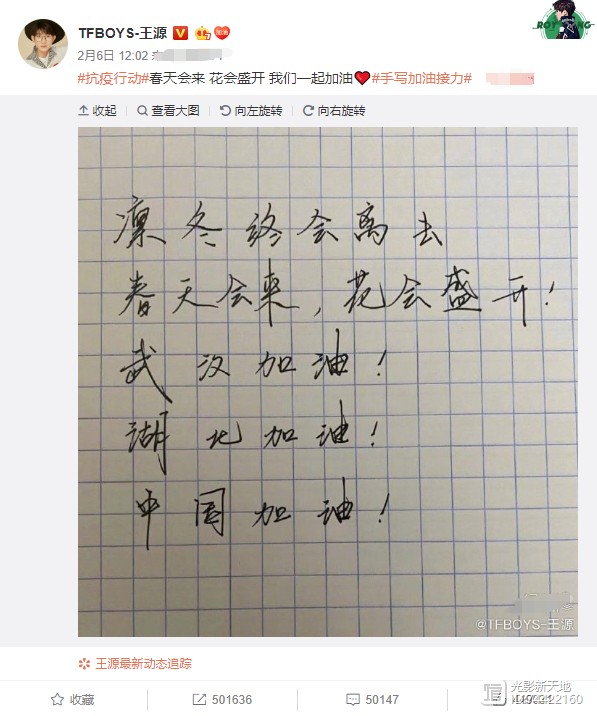 TFBOYS-王源
2月6日 12:02 来
#抗疫行动#春天会来 花会盛开 我们一起加油❤#手写加油接力#
收起 查看大图 向左旋转 向右旋转
凛冬终会离去
春天会来，花会盛开！
武汉加油！
湖北加油！
中国加油！
@TFBOYS-王源
王源最新动态追踪
收藏 501636 50147
光影新天地